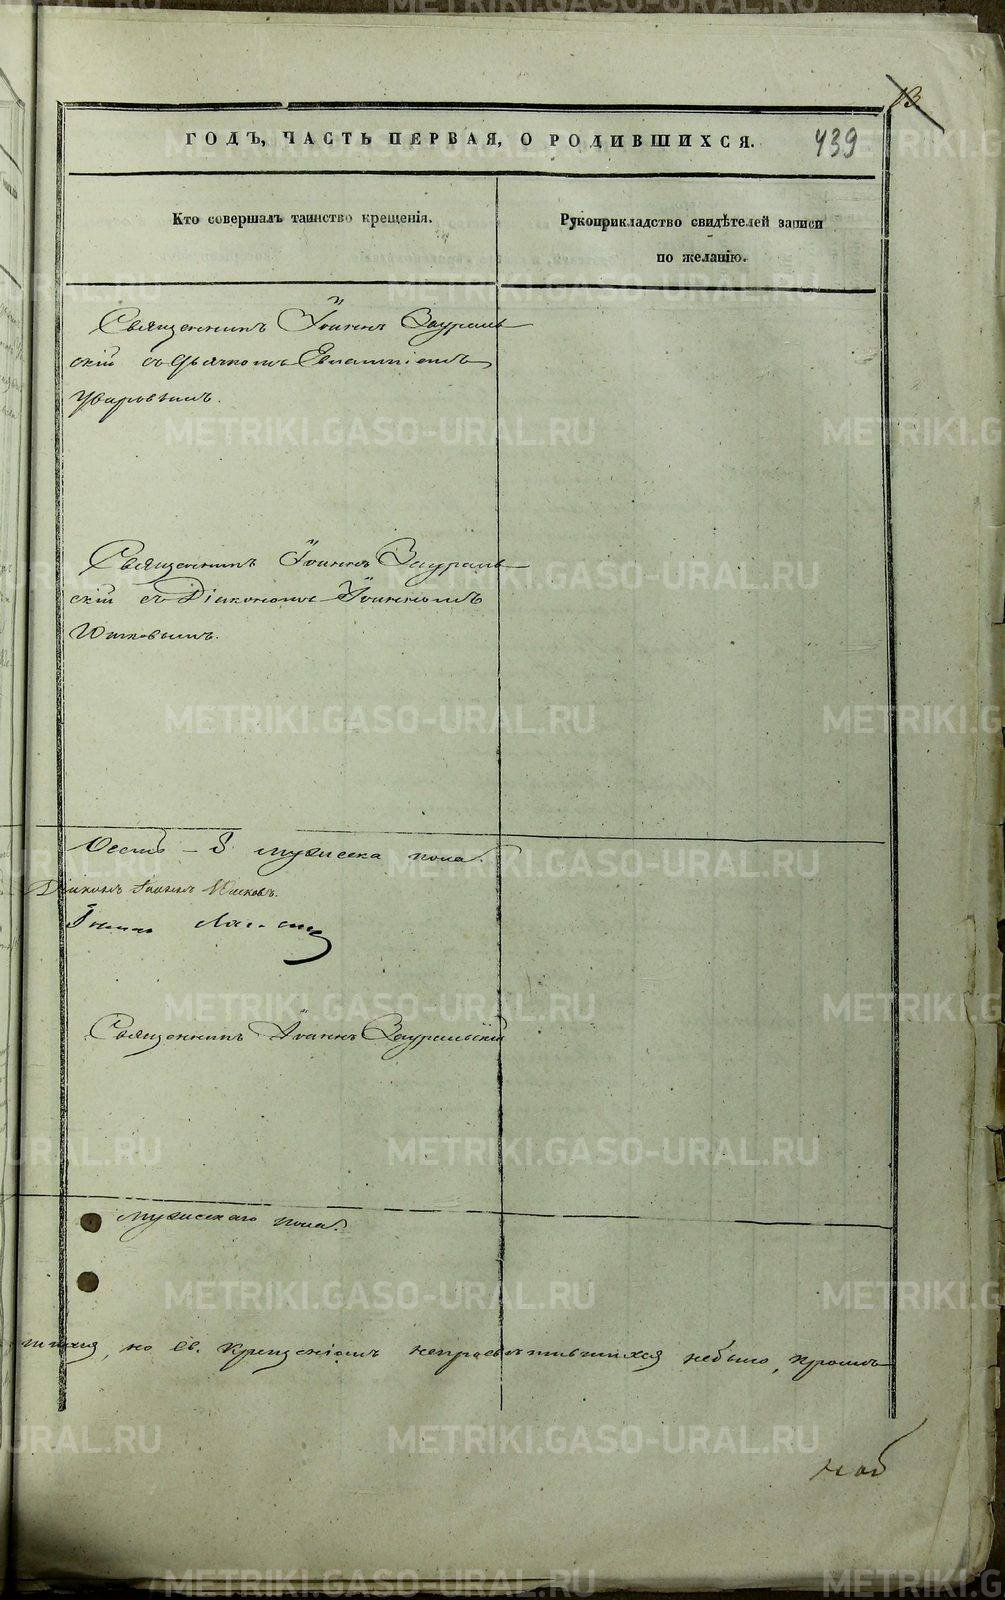 13
ГОДЪ, ЧАСТЬ ПЕРВАЯ, О РОДИВШИХСЯ.
439
Кто совершалъ таинство крещенія.
Рукоприкладство свидѣтелей записи
по желанію.
Священникъ Іоаннъ Заураль
скій съ Дьячкомъ
Уваровымъ.
Священникъ Іоаннъ Заураль
скій съ Діакономъ Іоанномъ
Юшковымъ.
мужеска пола.
Діаконъ Іоаннъ Юшковъ.
Священникъ Іоаннъ Зауральскій
мужескаго пола.
но Св. Крещеніемъ непросвѣтившихся небыло, кромѣ
METRIKI.GASO-URAL.RU